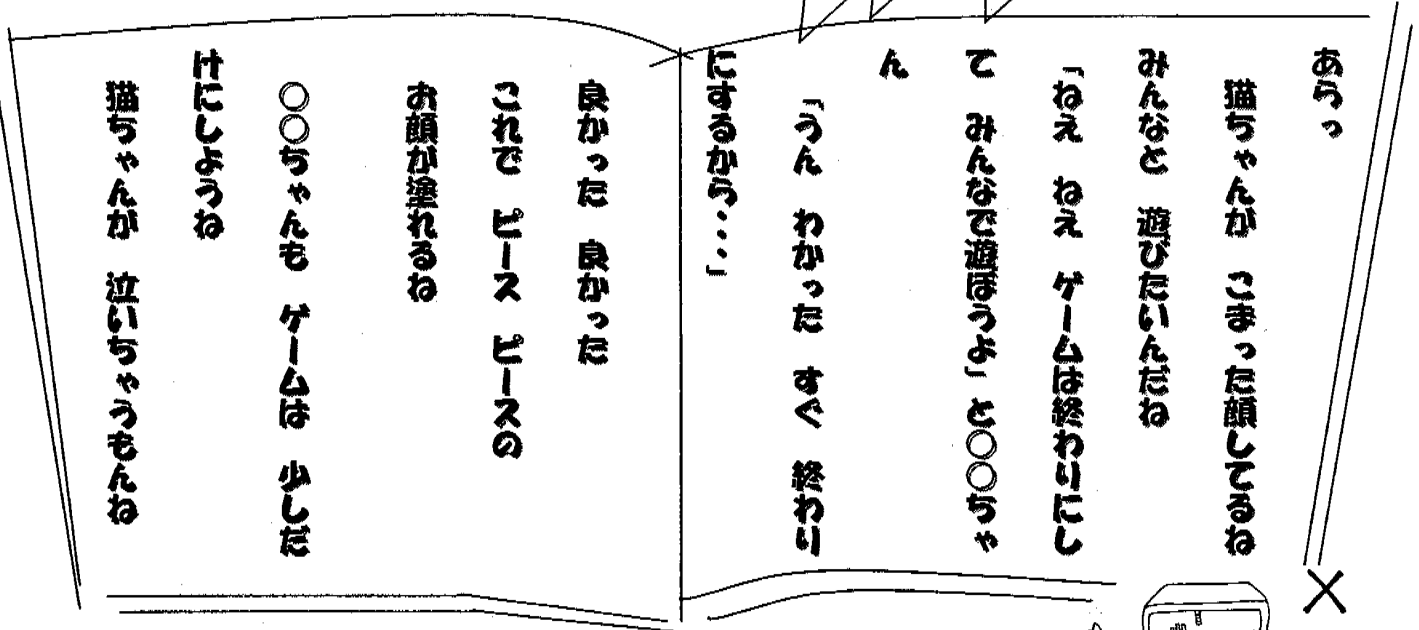 あらっ
猫ちゃんが　こまった顔してるね
みんなと　遊びたいんだね
「ねえ　ねえ　ゲームは終わりにし
て　みんなで遊ぼうよ」と○○ちゃ
ん
「うん　わかった　すぐ　終わり
にするから・・・」
良かった　良かった
これで　ピース　ピースの
お顔が塗れるね
○○ちゃんも　ゲームは　少しだ
けにしようね
猫ちゃんが　泣いちゃうもんね